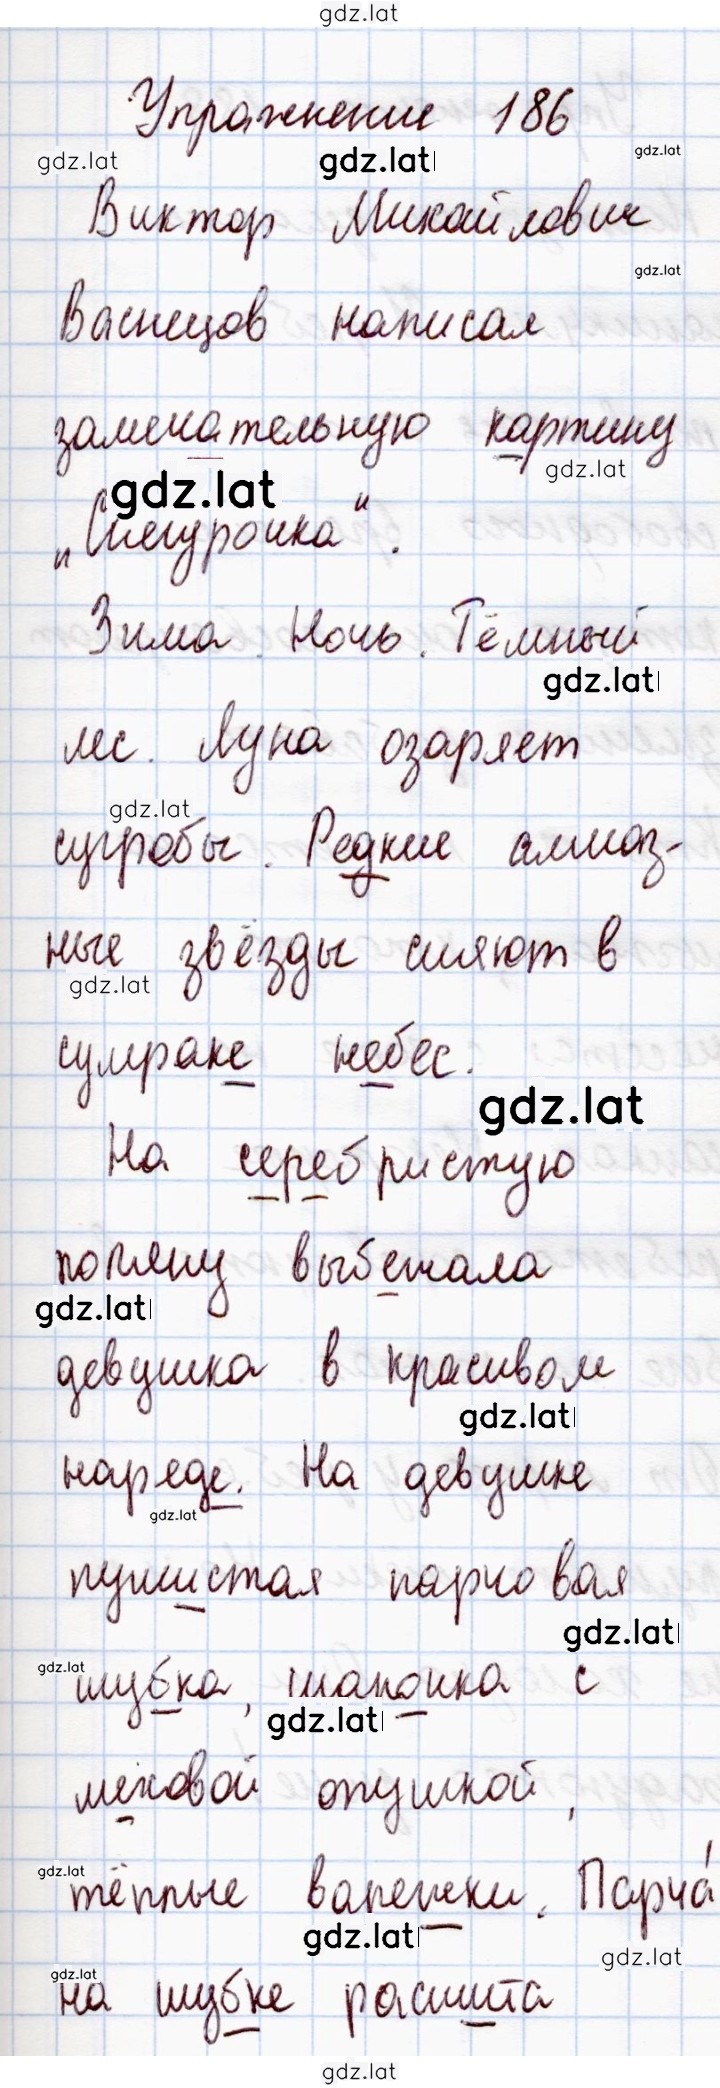 gdz.lat
Упражнение 186
gdz.lat gdz.lat gdz.lat
Виктор Михайлович
gdz.lat
Васнецов написал
замечательную картину
gdz.lat gdz.lat
„Снегурочка".
Зима. Ночь. Тёмный
gdz.lat
лес. Луна озаряет
gdz.lat
сугробы. Редкие алмаз-
ные звёзды сияют в
gdz.lat
сумраке небес.
gdz.lat
На серебристую
поляну выбежала
gdz.lat
девушка в красивом
gdz.lat
наряде. На девушке
gdz.lat
пушистая парчовая
gdz.lat
gdz.lat шубка, шапочка с
gdz.lat
меховой опушкой,
gdz.lat
тёплые варежки. Парча́
gdz.lat gdz.lat
gdz.lat
на шубке расшита
gdz.lat